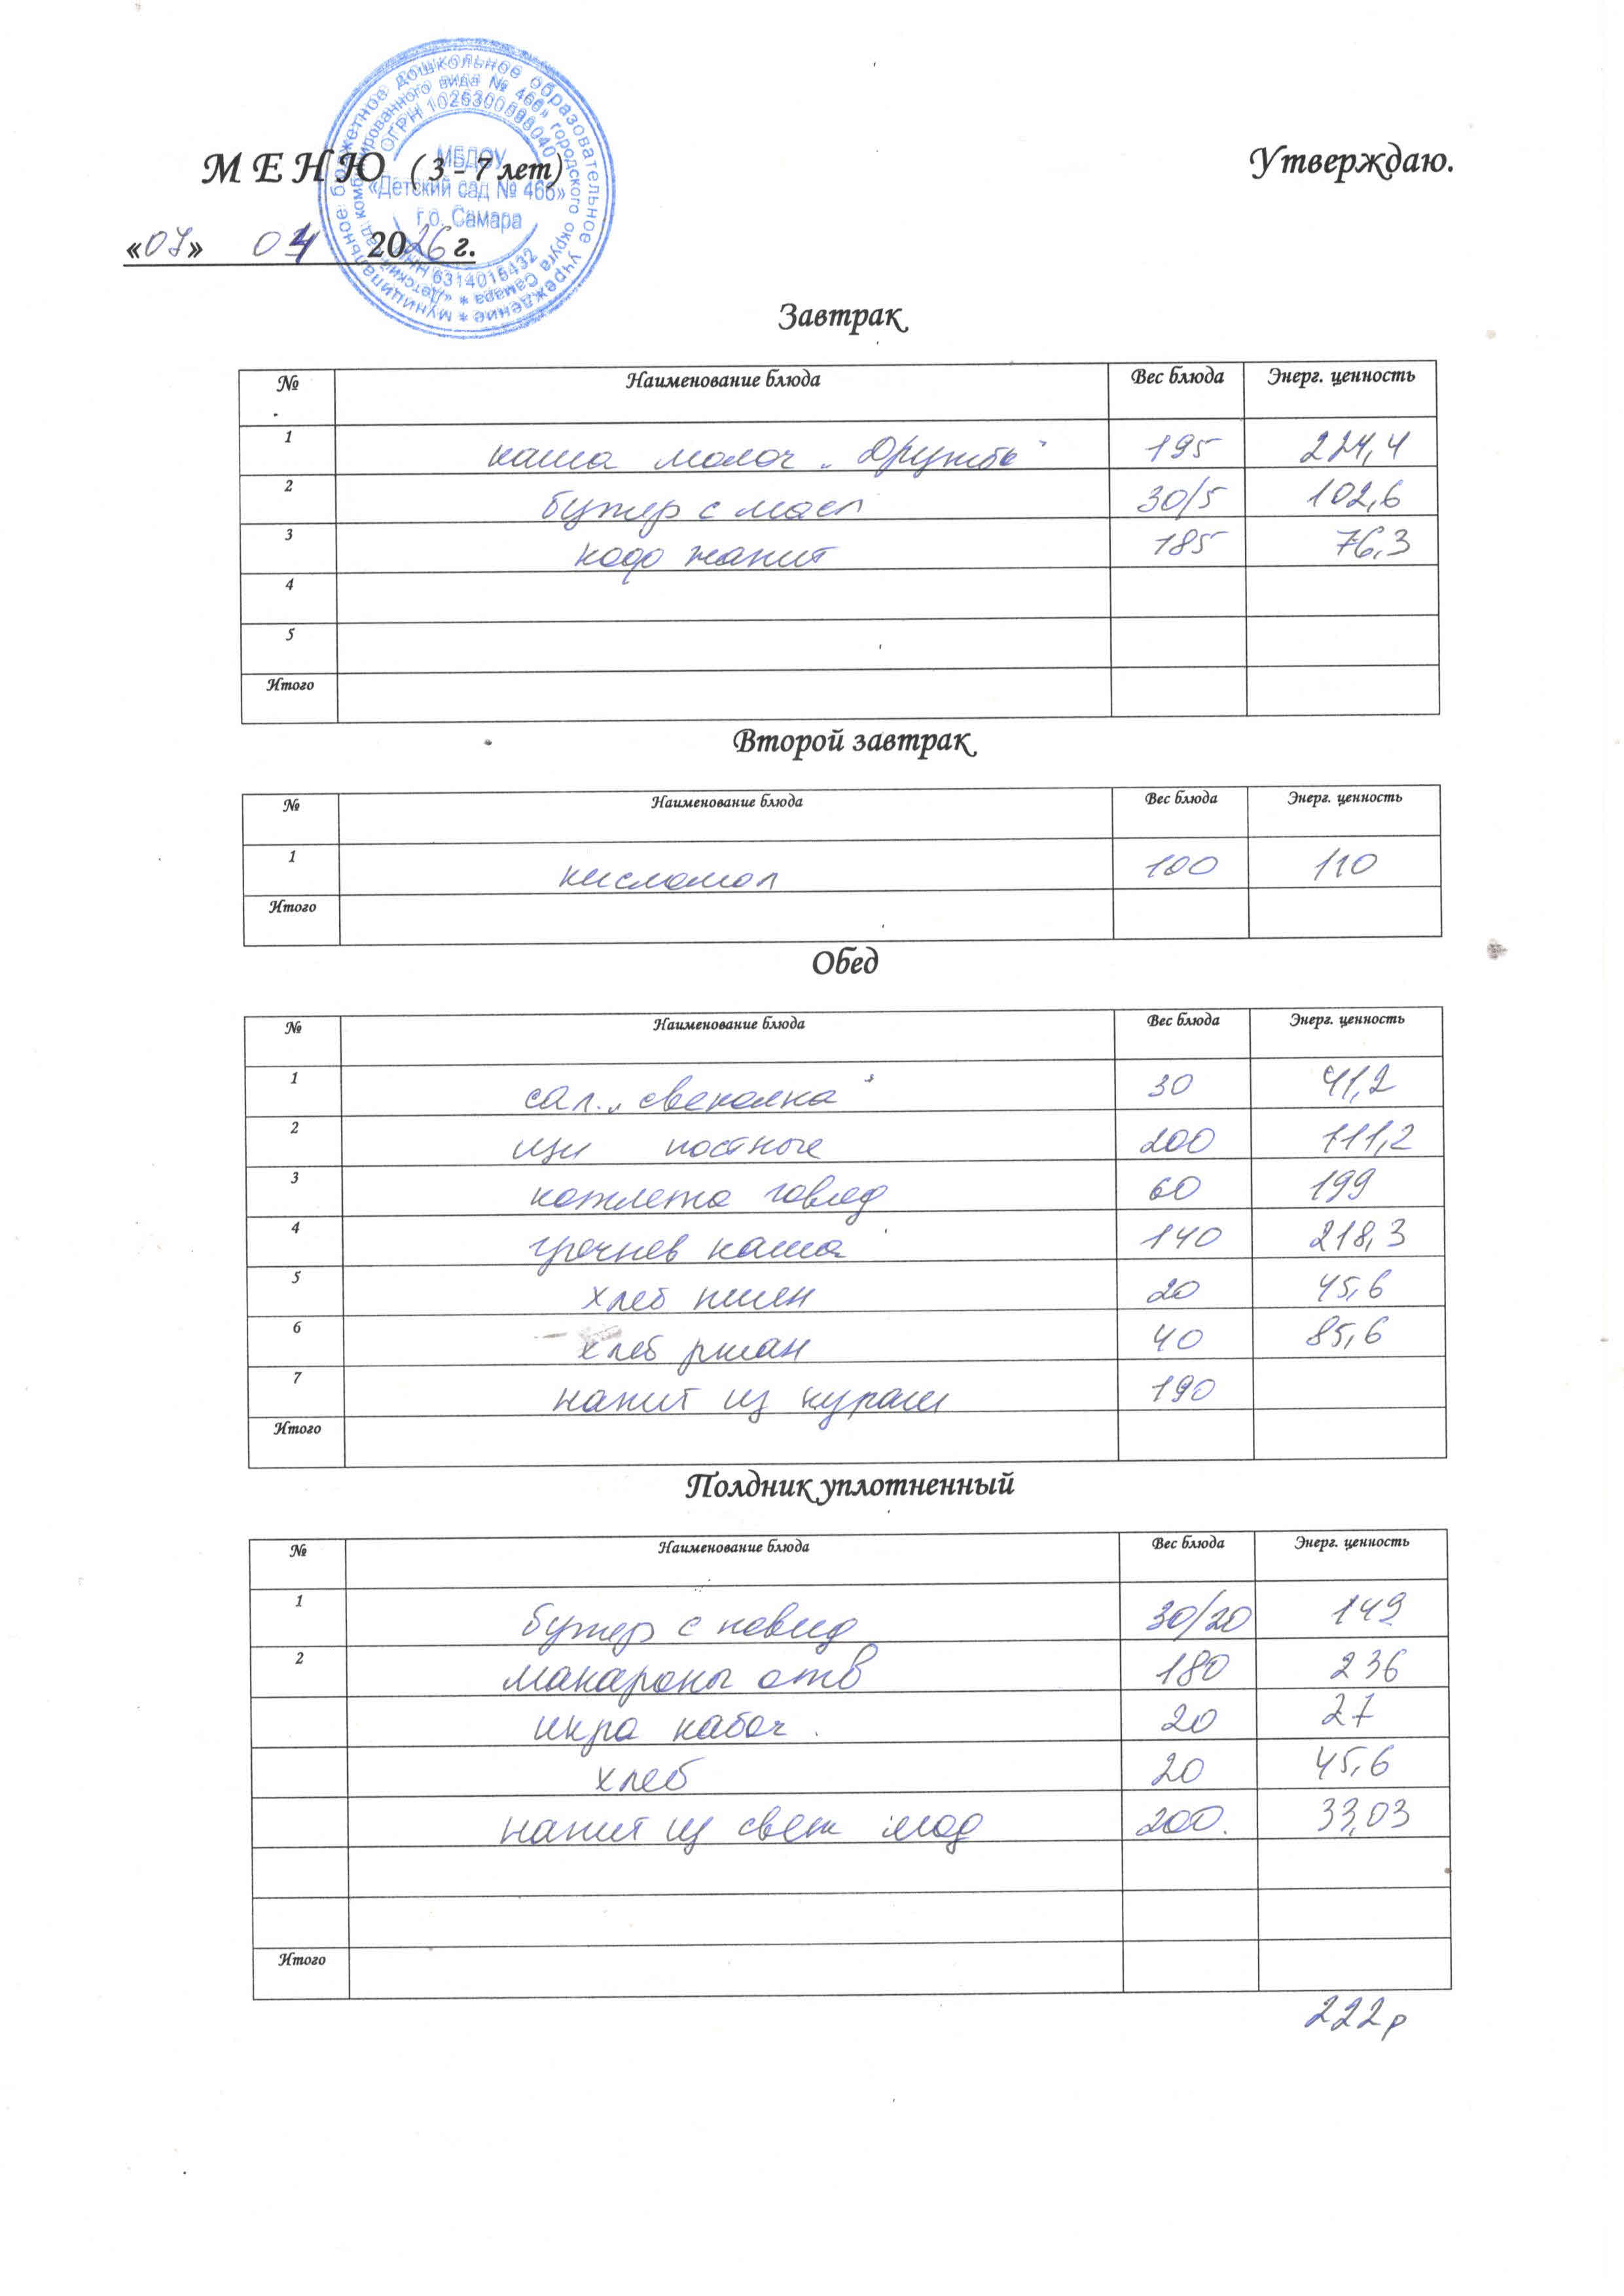 МЕНЮ (3 - 7 лет)
Утверждаю.
муниципальное бюджетное дошкольное образовательное учреждение
«Детский сад комбинированного вида № 466» городского округа Самара
ИНН 6314015432
МБДОУ
«Детский сад № 466»
г.о. Самара
«07» 04 2026 г.
Завтрак
№ Наименование блюда Вес блюда Энерг. ценность
1 каша молоч „Дружба" 195 224,4
2 бутер с масл 30/5 102,6
3 кофе напит 185 76,3
4
5
Итого
Второй завтрак
№ Наименование блюда Вес блюда Энерг. ценность
1 кисломол 100 110
Итого
Обед
№ Наименование блюда Вес блюда Энерг. ценность
1 сал. „свеколка" 30 41,2
2 щи постные 200 111,2
3 котлета говяд 60 199
4 гречнев каша 140 218,3
5 хлеб пшен 20 45,6
6 хлеб ржан 40 85,6
7 напит из кураги 190
Итого
Полдник уплотненный
№ Наименование блюда Вес блюда Энерг. ценность
1 бутер с повид 30/20 149
2 макароны отв 180 236
икра кабач. 20 27
хлеб 20 45,6
напит из свеж ягод 200. 33,03
Итого
222 р